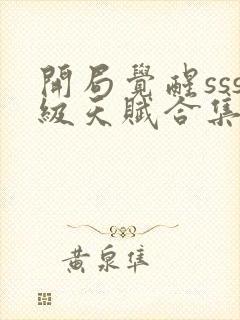 開局覺醒sss
級天賦合集
黃泉隼